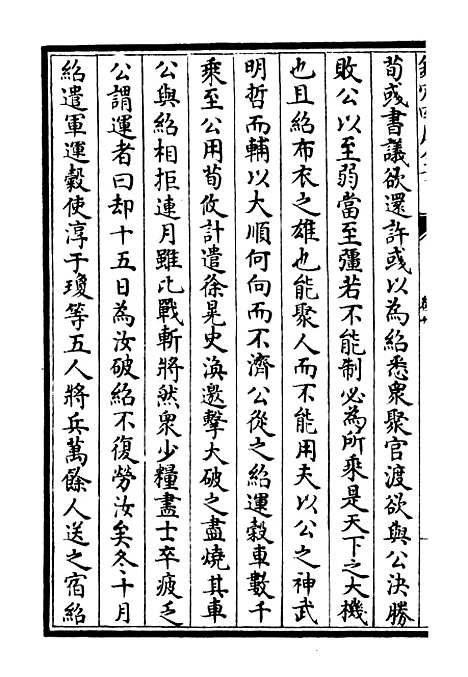 荀彧書議欲還許彧以為紹悉衆聚官渡欲與公決勝
敗公以至弱當至彊若不能制必為所乘是天下之大機
也且紹布衣之雄也能聚人而不能用夫以公之神武
明哲而輔以大順何向而不濟公從之紹運穀車數千
乘至公用荀攸計遣徐晃史渙邀擊大破之盡燒其車
公與紹相拒連月雖比戰斬將然衆少糧盡士卒疲乏
公謂運者曰却十五日為汝破紹不復勞汝矣冬十月
紹遣軍運穀使淳于瓊等五人將兵萬餘人送之宿紹